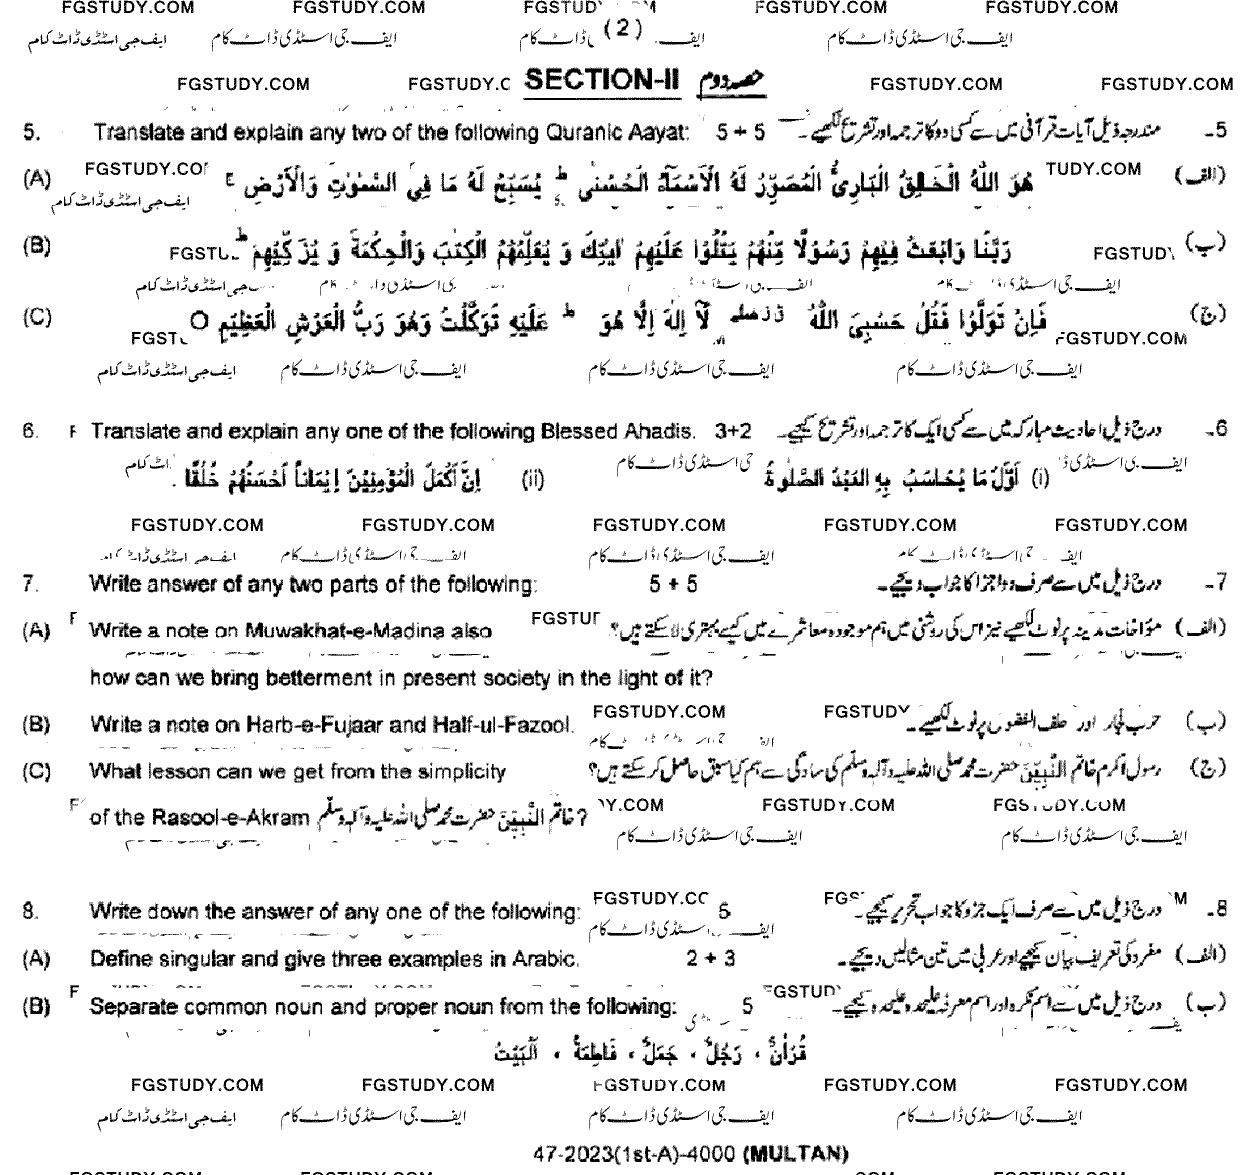 FGSTUDY.COM FGSTUDY.COM FGSTUD FGSTUDY.COM FGSTUDY.COM
ایف جی اسٹڈی ڈاٹ کام ایف جی اسٹڈی ڈاٹ کام ڈاٹ کام (2) ایف ایف جی اسٹڈی ڈاٹ کام
FGSTUDY.COM FGSTUDY.C SECTION-II حصہ دوم FGSTUDY.COM FGSTUDY.COM
5. Translate and explain any two of the following Quranic Aayat: 5 + 5 مندرجہ ذیل آیات قرآنی میں سے کسی دو کا ترجمہ اور تشریح لکھیے۔ -5
(A) FGSTUDY.CO هُوَ اللّٰهُ الْخَالِقُ الْبَارِئُ الْمُصَوِّرُ لَهُ الْاَسْمَآءُ الْحُسْنٰى ؕ يُسَبِّحُ لَهٗ مَا فِي السَّمٰوٰتِ وَالْاَرْضِ ۚ TUDY.COM (الف)
ایف جی اسٹڈی ڈاٹ کام
(B) FGSTU رَبَّنَا وَابْعَثْ فِيْهِمْ رَسُوْلًا مِّنْهُمْ يَتْلُوْا عَلَيْهِمْ اٰيٰتِكَ وَ يُعَلِّمُهُمُ الْكِتٰبَ وَالْحِكْمَةَ وَ يُزَكِّيْهِمْ ؕ FGSTUD (ب)
ایف جی اسٹڈی ڈاٹ کام
(C) FGST فَاِنْ تَوَلَّوْا فَقُلْ حَسْبِيَ اللّٰهُ لَآ اِلٰهَ اِلَّا هُوَ ؕ عَلَيْهِ تَوَكَّلْتُ وَهُوَ رَبُّ الْعَرْشِ الْعَظِيْمِ O FGSTUDY.COM (ج)
ایف جی اسٹڈی ڈاٹ کام ایف جی اسٹڈی ڈاٹ کام ایف جی اسٹڈی ڈاٹ کام ایف جی اسٹڈی ڈاٹ کام
6. F Translate and explain any one of the following Blessed Ahadis. 3+2 درج ذیل احادیث مبارکہ میں سے کسی ایک کا ترجمہ اور تشریح کیجیے۔ -6
(i) اَوَّلُ مَا يُحَاسَبُ بِهِ الْعَبْدُ الصَّلٰوةُ (ii) اِنَّ اَكْمَلَ الْمُؤْمِنِيْنَ اِيْمَاناً اَحْسَنُهُمْ خُلُقًا .
FGSTUDY.COM FGSTUDY.COM FGSTUDY.COM FGSTUDY.COM FGSTUDY.COM
ایف جی اسٹڈی ڈاٹ کام ایف جی اسٹڈی ڈاٹ کام
7. Write answer of any two parts of the following: 5 + 5 درج ذیل میں سے صرف دو اجزا کا جواب دیجیے۔ -7
(A) F Write a note on Muwakhat-e-Madina also FGSTUF مؤاخات مدینہ پر نوٹ لکھیے نیز اس کی روشنی میں ہم موجودہ معاشرے میں کیسے بہتری لا سکتے ہیں؟ (الف)
how can we bring betterment in present society in the light of it?
(B) Write a note on Harb-e-Fujaar and Half-ul-Fazool. FGSTUDY.COM FGSTUDY حرب فجار اور حلف الفضول پر نوٹ لکھیے۔ (ب)
(C) What lesson can we get from the simplicity رسول اکرم خاتم النّبیّٖن حضرت محمد صلی اللہ علیہ وآلہ وسلم کی سادگی سے ہم کیا سبق حاصل کر سکتے ہیں؟ (ج)
of the Rasool-e-Akram خاتم النّبیّٖن حضرت محمد صلی اللہ علیہ وآلہ وسلم? Y.COM FGSTUDY.COM FGSTUDY.COM
ایف جی اسٹڈی ڈاٹ کام ایف جی اسٹڈی ڈاٹ کام
8. Write down the answer of any one of the following: FGSTUDY.CC 5 FGS درج ذیل میں سے صرف ایک جزو کا جواب تحریر کیجیے۔ M -8
ایف جی اسٹڈی ڈاٹ کام
(A) Define singular and give three examples in Arabic. 2 + 3 مفرد کی تعریف بیان کیجیے اور عربی میں تین مثالیں دیجیے۔ (الف)
(B) F Separate common noun and proper noun from the following: 5 FGSTUD درج ذیل میں سے اسم نکرہ اور اسم معرفہ علیحدہ علیحدہ کیجیے۔ (ب)
قُرْاٰنٌ ، رَجُلٌ ، جَمَلٌ ، فَاطِمَةُ ، اَلْبَيْتُ
FGSTUDY.COM FGSTUDY.COM FGSTUDY.COM FGSTUDY.COM FGSTUDY.COM
ایف جی اسٹڈی ڈاٹ کام ایف جی اسٹڈی ڈاٹ کام ایف جی اسٹڈی ڈاٹ کام ایف جی اسٹڈی ڈاٹ کام
47-2023(1st-A)-4000 (MULTAN)